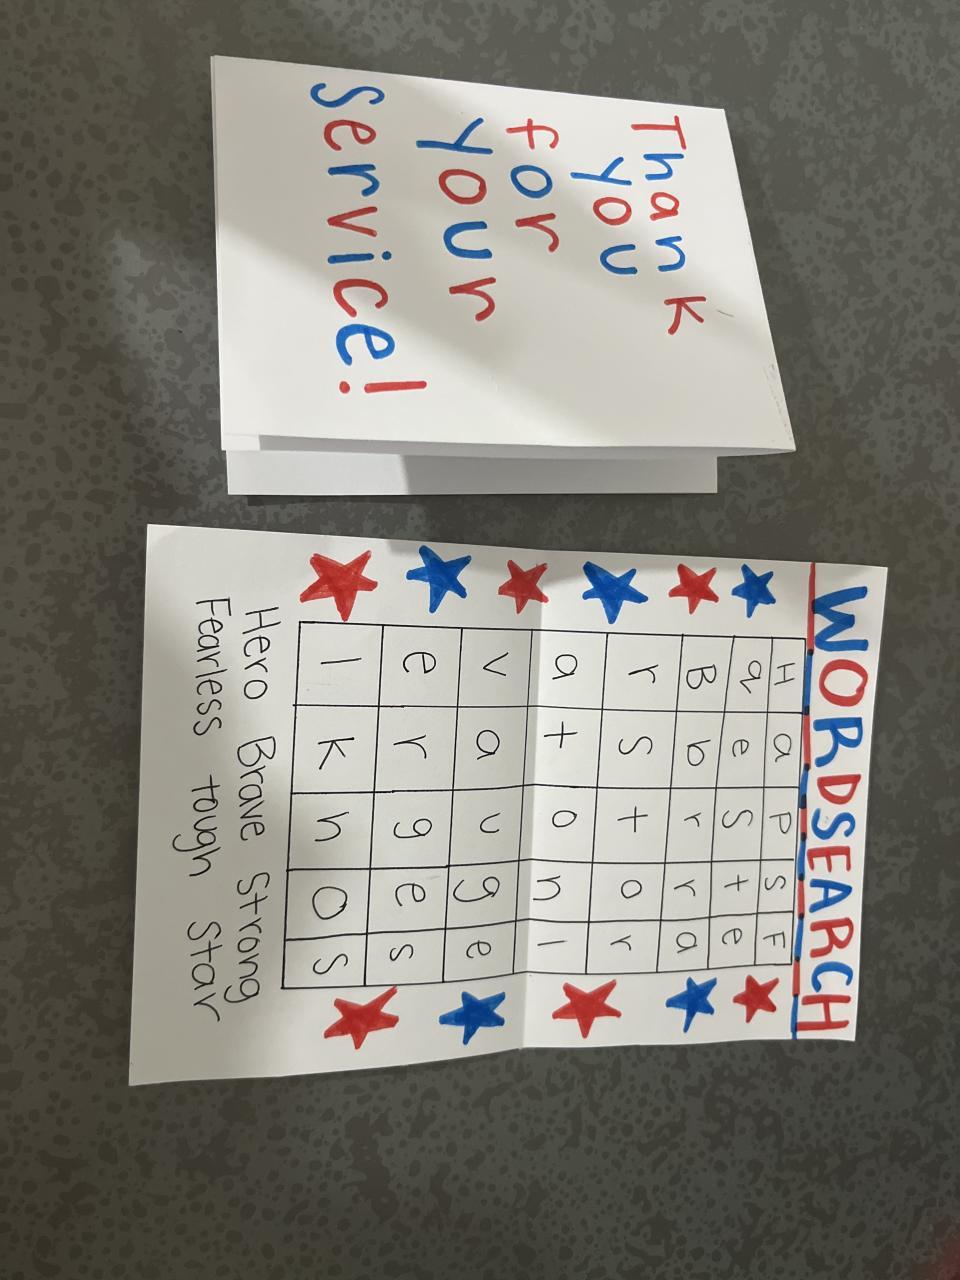 Thank
you
for
your
Service!
WORDSEARCH
H a P S F
a e S t e
B b r r a
r S t o r
a t o n l
v a u g e
e r g e s
l k h O S
Hero Brave Strong
Fearless tough Star